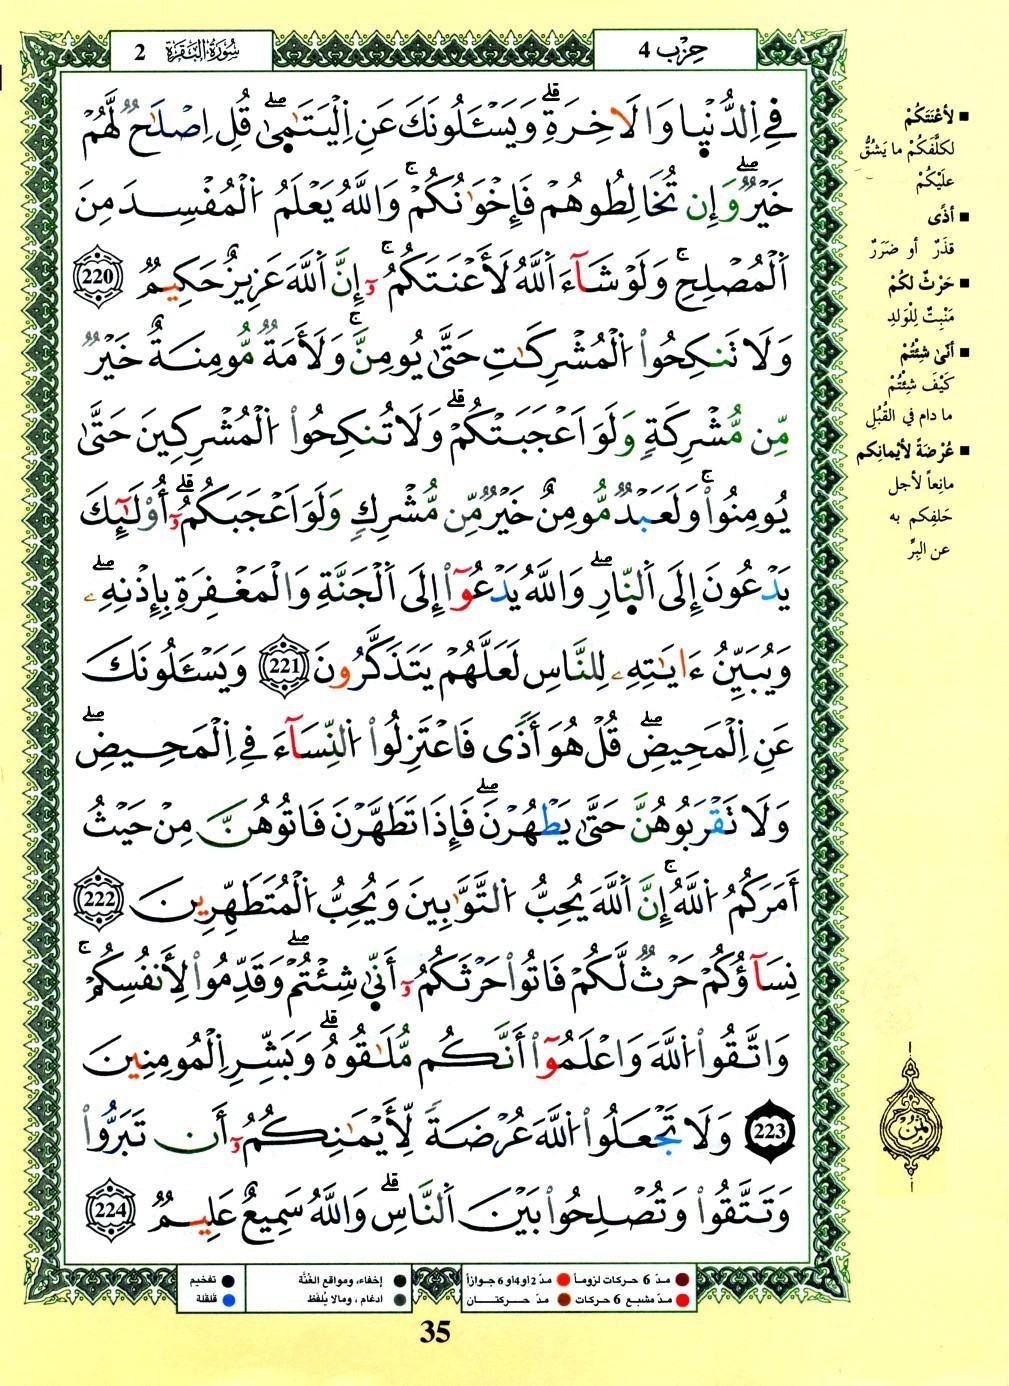 سُورَةُ البَقَرَة 2
حِزْب 4
فِے اِ۬لدُّنْي۪ا وَالَاخِرَةِۖ وَيَسْـَٔلُونَكَ عَنِ اِ۬لْيَتَٰم۪ىٰۖ قُلِ اِصْلَٰحٞ لَّهُمْ
خَيْرٞۖ وَإِن تُخَالِطُوهُمْ فَإِخْوَٰنُكُمْۚ وَاللَّهُ يَعْلَمُ اُ۬لْمُفْسِدَ مِنَ
اَ۬لْمُصْلِحِۚ وَلَوْ شَآءَ اَ۬للَّهُ لَأَعْنَتَكُمُۥٓۚ إِنَّ اَ۬للَّهَ عَزِيزٌ حَكِيمٞ 220
وَلَا تَنكِحُواْ اُ۬لْمُشْرِكَٰتِ حَتَّىٰ يُومِنَّۚ وَلَأَمَةٞ مُّومِنَةٌ خَيْرٞ
مِّن مُّشْرِكَةٖ وَلَوَ اَعْجَبَتْكُمْۖ وَلَا تُنكِحُواْ اُ۬لْمُشْرِكِينَ حَتَّىٰ
يُومِنُواْۚ وَلَعَبْدٞ مُّومِنٌ خَيْرٞ مِّن مُّشْرِكٖ وَلَوَ اَعْجَبَكُمُۥٓۖ أُوْلَٰٓئِكَ
يَدْعُونَ إِلَى اَ۬لنّ۪ارِۖ وَاللَّهُ يَدْعُوٓاْ إِلَى اَ۬لْجَنَّةِ وَالْمَغْفِرَةِ بِإِذْنِهِۦۖ
وَيُبَيِّنُ ءَايَٰتِهِۦ لِلنَّاسِ لَعَلَّهُمْ يَتَذَكَّرُونَ 221 وَيَسْـَٔلُونَكَ
عَنِ اِ۬لْمَحِيضِۖ قُلْ هُوَ أَذٗى فَاعْتَزِلُواْ اُ۬لنِّسَآءَ فِے اِ۬لْمَحِيضِۖ
وَلَا تَقْرَبُوهُنَّ حَتَّىٰ يَطْهُرْنَۖ فَإِذَا تَطَهَّرْنَ فَاتُوهُنَّ مِنْ حَيْثُ
أَمَرَكُمُ اُ۬للَّهُۚ إِنَّ اَ۬للَّهَ يُحِبُّ اُ۬لتَّوَّٰبِينَ وَيُحِبُّ اُ۬لْمُتَطَهِّرِينَ 222
نِسَآؤُكُمْ حَرْثٞ لَّكُمْ فَاتُواْ حَرْثَكُمُۥٓ أَنّ۪ىٰ شِئْتُمْۖ وَقَدِّمُواْ لِأَنفُسِكُمْۚ
وَاتَّقُواْ اُ۬للَّهَ وَاعْلَمُوٓاْ أَنَّكُم مُّلَٰقُوهُۖ وَبَشِّرِ اِ۬لْمُومِنِينَ
223 وَلَا تَجْعَلُواْ اُ۬للَّهَ عُرْضَةٗ لِّأَيْمَٰنِكُمُۥٓ أَن تَبَرُّواْ
وَتَتَّقُواْ وَتُصْلِحُواْ بَيْنَ اَ۬لنَّاسِۖ وَاللَّهُ سَمِيعٌ عَلِيمٞ 224
■ لأعْنَتَكُمْ
لكلَّفَكُمْ ما يَشُقُّ
علَيْكُمْ
■ أذًى
قذَرٌ أو ضَرَرٌ
■ حَرْثٌ لكُمْ
مَنْبِتٌ لِلْوَلدِ
■ أنّىٰ شِئْتُمْ
كَيْفَ شِئْتُمْ
ما دام في القُبُلِ
■ عُرْضَةً لأيْمانِكم
مانِعاً لأجل
حَلفِكم به
عن البِرِّ
ثمن
مدّ 6 حركات لزوماً
مدّ 2 أو 4 أو 6 جوازاً
إخفاء، ومواقع الغُنَّة
تفخيم
مدّ مشبع 6 حركات
مدّ حركتان
ادغام ، ومالا يُلفظ
قلقلة
35